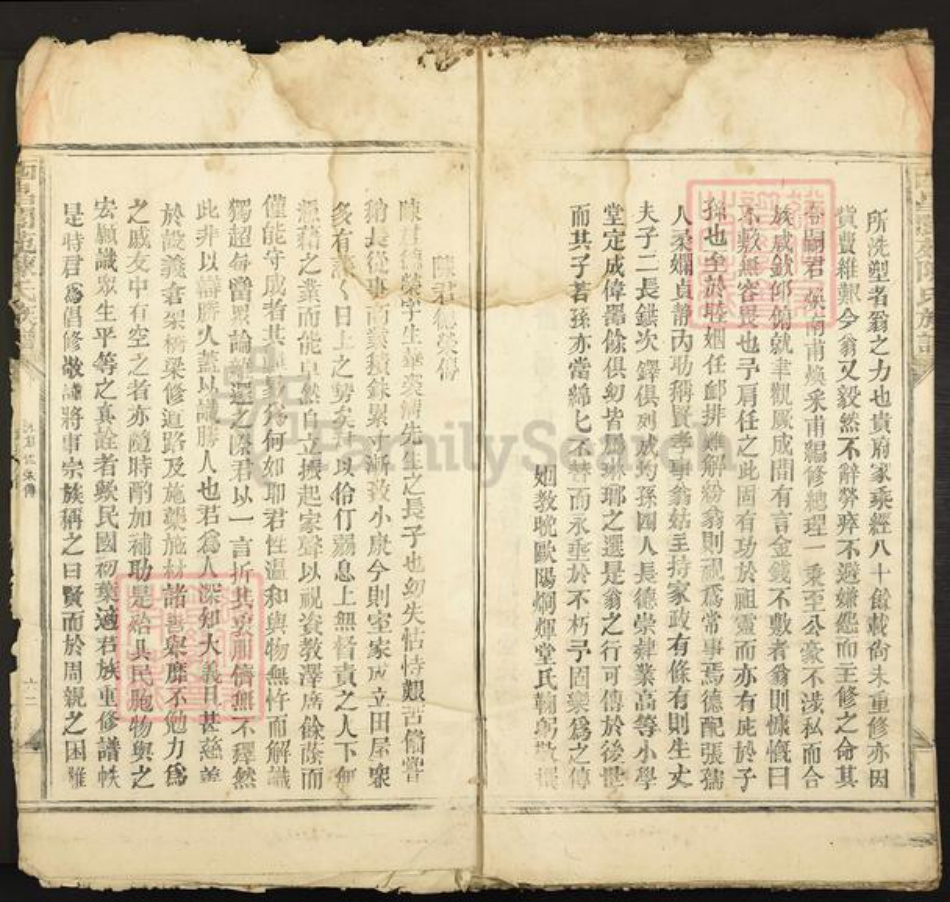 所洗塑者翁之力也貴府家乘經八十餘載尙未重修亦因
貲費維艱今翁又毅然不辭勞瘁不避嫌怨而主修之命其
嗣君煥南甫煥采甫編修總理一秉至公豪不涉私而合
族咸欽仰俯就聿觀厥成間有言金錢不敷者翁則慷慨曰
不敷無容畏也予肩任之此固有功於祖靈而亦有庇於子
孫也至於睦婣任䘏排難解紛翁則視爲常事焉德配張孺
人柔嫻貞靜內助稱賢孝事翁姑主持家政有條有則生丈
夫子二長鉷次鐸俱列成均孫四人長德崇肄業高等小學
堂定成偉器餘俱幼皆爲琳瑯之選是翁之行可傳於後世
而其子若孫亦當綿匕不替而永垂於不朽予固樂爲之傳
姻教晚歐陽炯煇堂氏鞠躬敬撰
陳君德榮傳
陳君德榮字生華先生之長子也幼失怙恃艱苦備嘗
稍長從事商業積銖累寸漸致小康今則室家成立田屋衆
多有蒸〱日上之勢矣以伶仃弱息上無督責之人下無
憑藉之業而能卓然自立振起家聲以視資教澤席餘蔭而
僅能守成者其爲何如耶君性溫和與物無忤而解識
獨超每當眾論紛遝之際君以一言折其衷朋儕無不釋然
此非以辯勝人蓋以識勝人也君爲人深知大義且甚慈善
於設義倉架橋梁修道路及施藥施材諸義舉靡不勉力爲
之戚友中有空之者亦隨時酌加補助是殆具民胞物與之
宏願識眾生平等之真詮者歟民國初葉適君族重修譜帙
是時君爲倡修敬謹將事宗族稱之曰賢而於周親之困難
陳氏族譜
六二